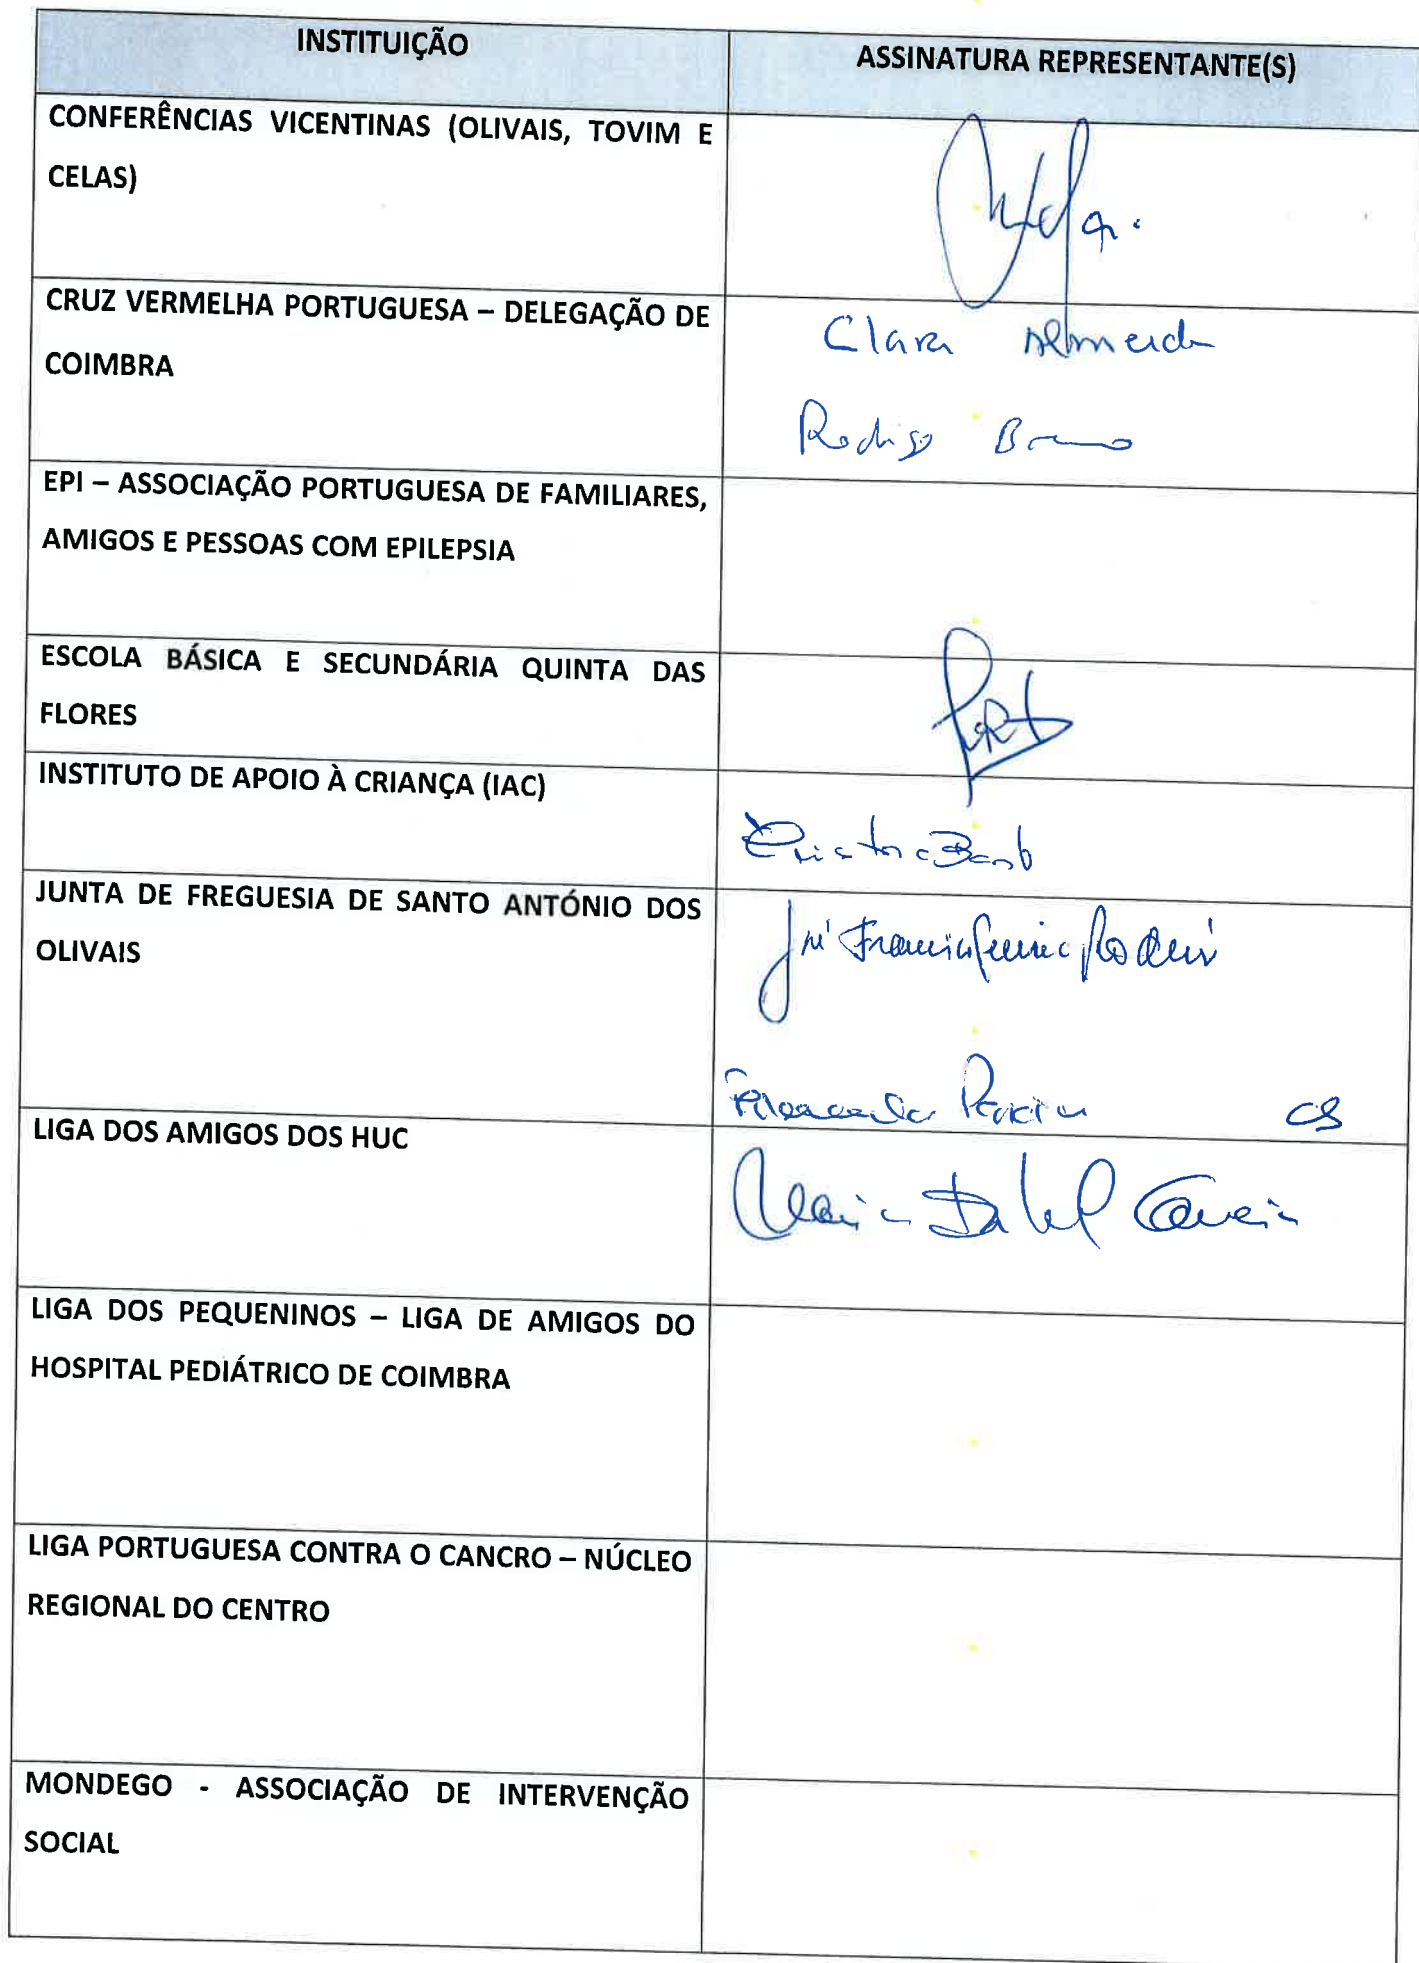 INSTITUIÇÃO
ASSINATURA REPRESENTANTE(S)
CONFERÊNCIAS VICENTINAS (OLIVAIS, TOVIM E
CELAS)
CRUZ VERMELHA PORTUGUESA – DELEGAÇÃO DE
COIMBRA
Clara Almeida
Rodrigo
EPI – ASSOCIAÇÃO PORTUGUESA DE FAMILIARES,
AMIGOS E PESSOAS COM EPILEPSIA
ESCOLA BÁSICA E SECUNDÁRIA QUINTA DAS
FLORES
INSTITUTO DE APOIO À CRIANÇA (IAC)
JUNTA DE FREGUESIA DE SANTO ANTÓNIO DOS
OLIVAIS
LIGA DOS AMIGOS DOS HUC
Maria Isabel
LIGA DOS PEQUENINOS – LIGA DE AMIGOS DO
HOSPITAL PEDIÁTRICO DE COIMBRA
LIGA PORTUGUESA CONTRA O CANCRO – NÚCLEO
REGIONAL DO CENTRO
MONDEGO - ASSOCIAÇÃO DE INTERVENÇÃO
SOCIAL